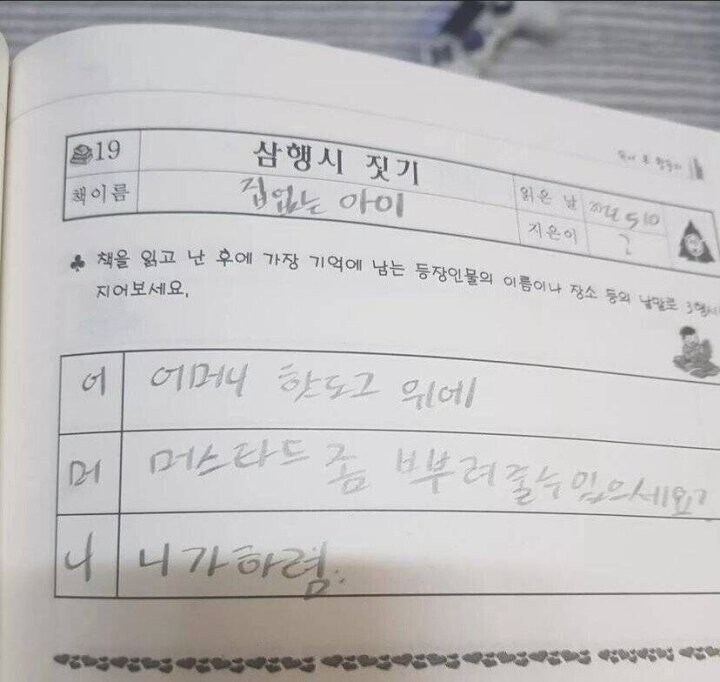 19
삼행시 짓기
책이름
집없는 아이
읽은 날
지은이
?
♣ 책을 읽고 난 후에 가장 기억에 남는 등장인물의 이름이나 장소 등의 낱말로 3행시
지어보세요.
어
어머니 핫도그 위에
머
머스타드 좀 뿌려줄수 있으세요?
니
니가하렴.